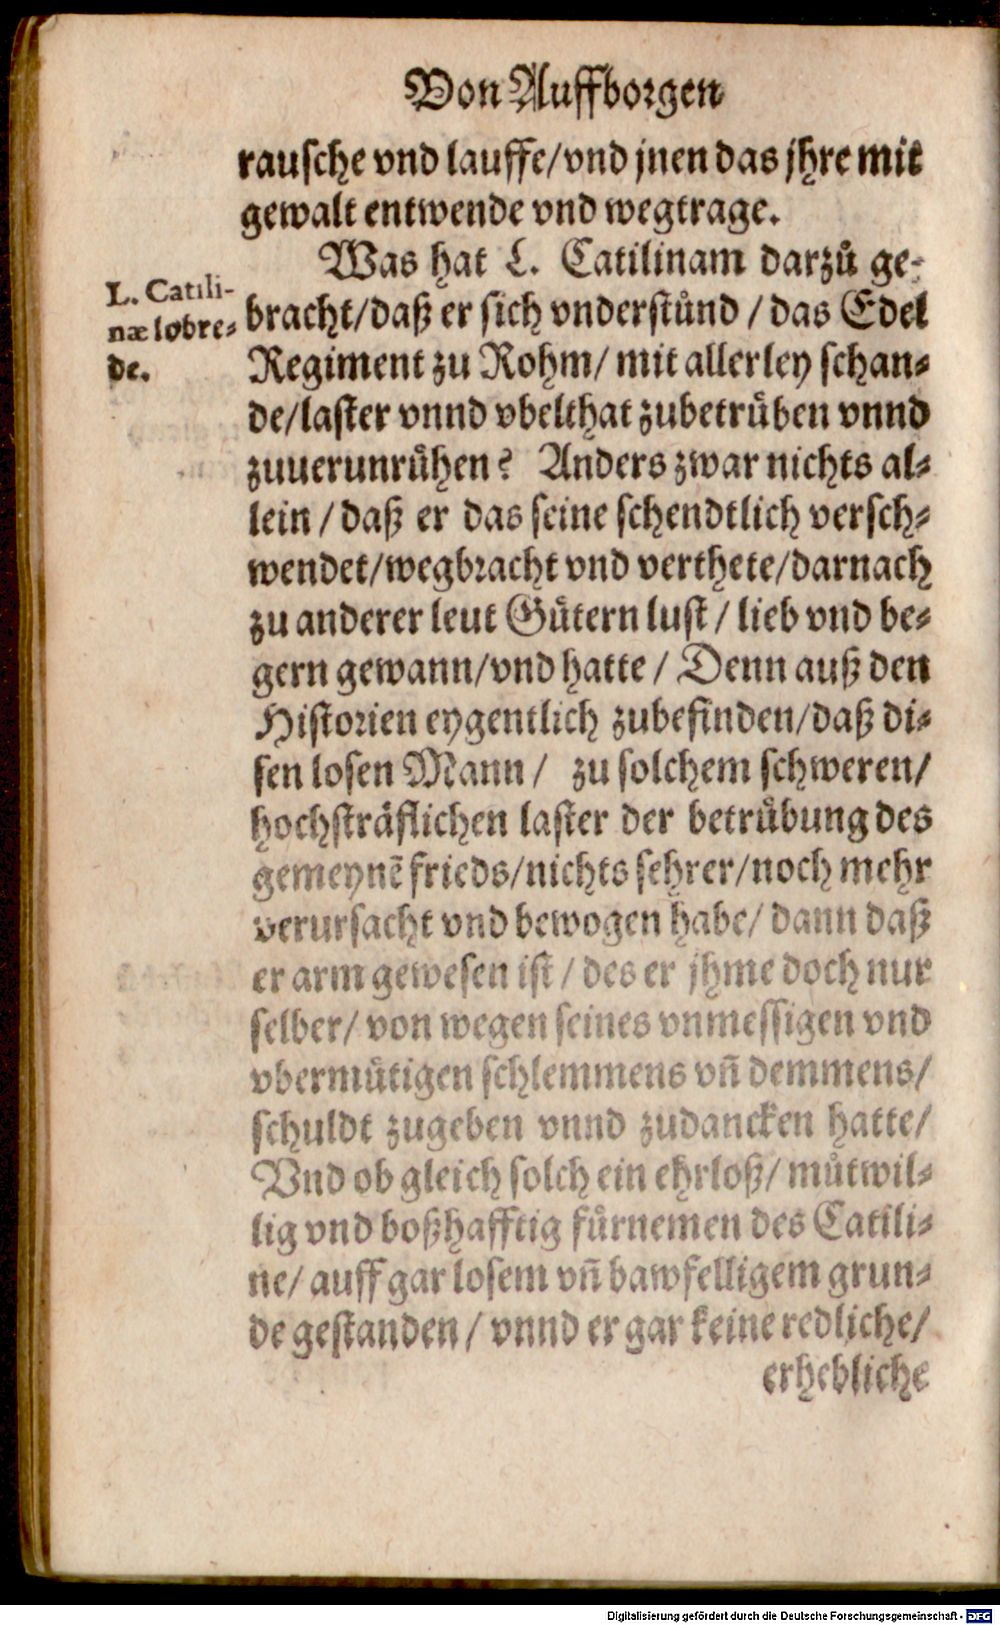 Von Auffborgen
rausche vnd lauffe/vnd jnen das jhre mit
gewalt entwende vnd wegtrage.
Was hat L. Catilinam darzů ge-
L. Catili-
næ lobre-
de.
bracht/daß er sich vnderstůnd / das Edel
Regiment zu Rohm/ mit allerley schan-
de/laster vnnd vbelthat zubetrůben vnnd
zuuerunrůhen? Anders zwar nichts al-
lein / daß er das seine schendtlich versch-
wendet/wegbracht vnd verthete/darnach
zu anderer leut Gůtern lust / lieb vnd be-
gern gewann/vnd hatte / Denn auß den
Historien eygentlich zubefinden/daß di-
sen losen Mann / zu solchem schweren/
hochsträflichen laster der betrůbung des
gemeynē frieds/nichts sehrer/noch mehr
verursacht vnd bewogen habe/ dann daß
er arm gewesen ist / des er jhme doch nur
selber/ von wegen seines vnmessigen vnd
vbermůtigen schlemmens vñ demmens/
schuldt zugeben vnnd zudancken hatte/
Vnd ob gleich solch ein ehrloß/ můtwil-
lig vnd boßhafftig fůrnemen des Catili-
ne/ auff gar losem vñ bawfelligem grun-
de gestanden / vnnd er gar keine redliche/
erhebliche
Digitalisierung gefördert durch die Deutsche Forschungsgemeinschaft - DFG